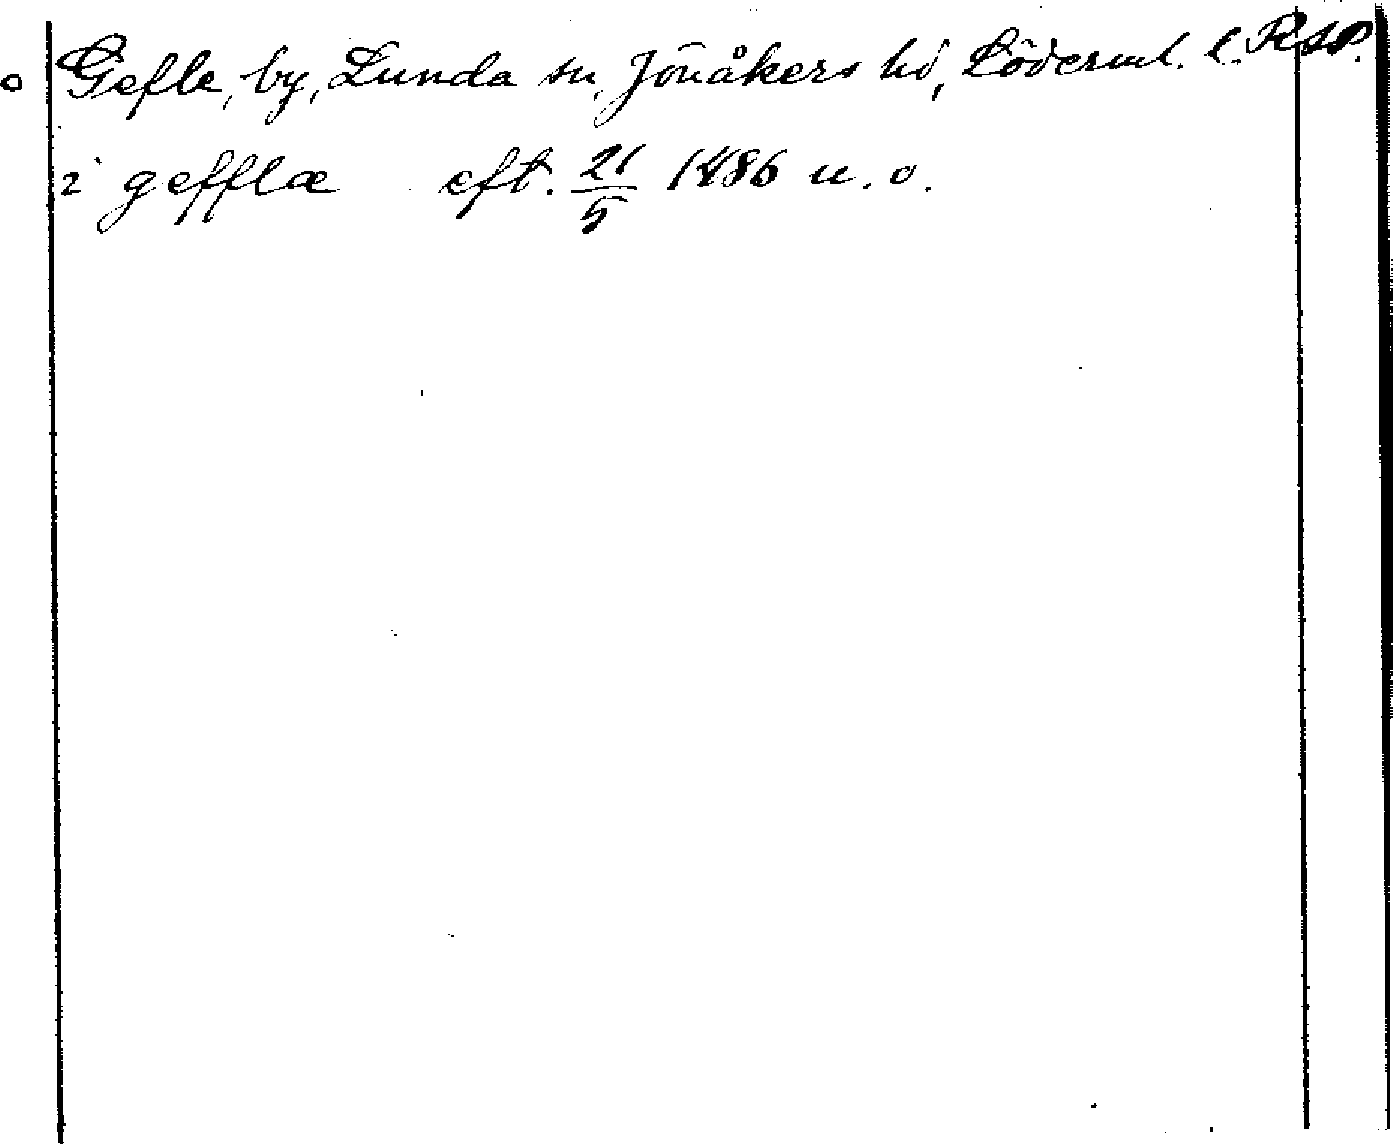 Gefle, by, Lunda sn, Jönåkers hd, Söderml. l. RAP.
i gefflæ eft. 21/5 1486 u. o.